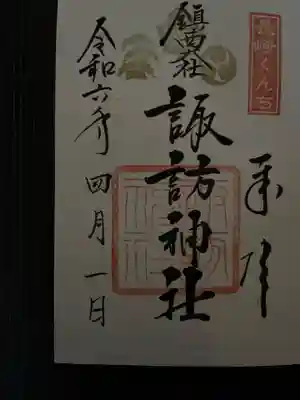 長崎くんち
奉拝
鎮西大社
諏訪神社
令和六年四月一日